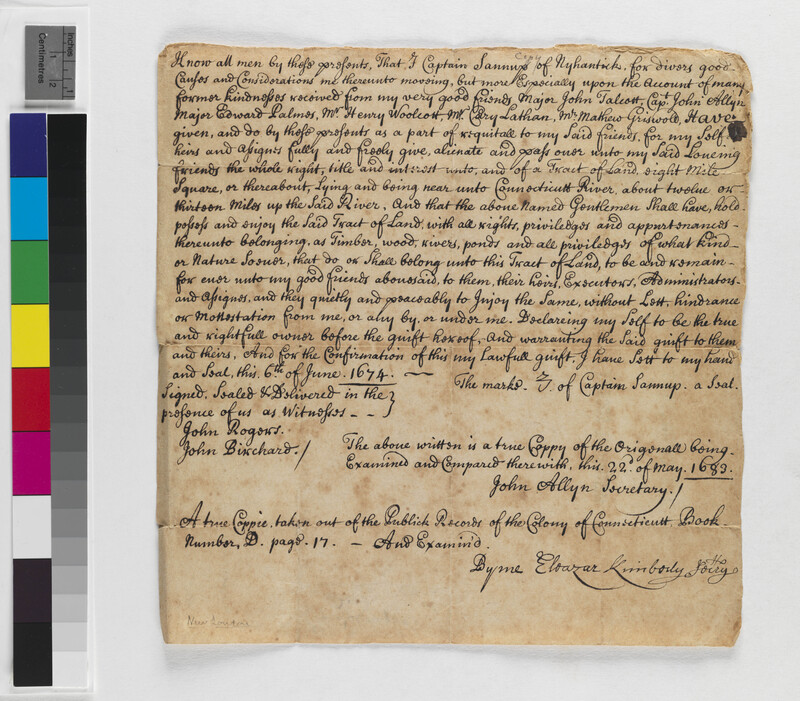 Inches
Centimetres
1
2
Know all men by these presents, That I Captain Sannup of Nyhantick, for divers good
Causes and Considerations me thereunto moveing, but more Especially upon the Account of many
former kindnesses received from my very good friends Major John Talcott, Capt John Allyn
Major Edward Palmes, Mr Henry Woolcott, Mr Cary Lathan, Mr Mathew Griswold, Have
given, and do by these presents as a part of requitall to my Said friends, for my Self
heirs and Assignes fully and freely give, alienate and pass over unto my Said Loveing
friends the whole right, title and interest unto, and of a Tract of Land, eight Mile
Square, or thereabout, Lying and being near unto Connecticutt River, about twelve or
thirteen Miles up the Said River. And that the above Named Gentlemen Shall have, hold
possess and enjoy the Said Tract of Land, with all rights, priviledges and appurtenances -
thereunto belonging, as Timber, wood, rivers, ponds and all priviledges of what kind
or Nature Soever, that do or Shall belong unto this Tract of Land, to be and remain -
for ever unto my good friends abovesaid, to them, their heirs, Executors, Administrators
and Assignes, and they quietly and peaceably to Injoy the Same, without Lett, hindrance
or Mollestation from me, or any by, or under me. Declareing my Self to be the true
and rightfull owner before the guift hereof, And warranting the Said guift to them
and theirs, And for the Confirmation of this my Lawfull guift, I have Sett to my hand
and Seal, this. 6th of June. 1674. — The marke of Captain Sannup. a Seal.
Signed, Sealed & Delivered in the }
presence of us as Witnesses - - }
John Rogers.
John Birchard. /
The above written is a true Coppy of the Origenall being.
Examined and Compared therewith, this. 22d of May. 1683.
John Allyn Secretary. /
A true Coppie, taken out of the Publick Records of the Colony of Connecticutt Book
Number, D. page. 17. — And Examin'd.
By me Eleazar Kimberly Secrty
New London